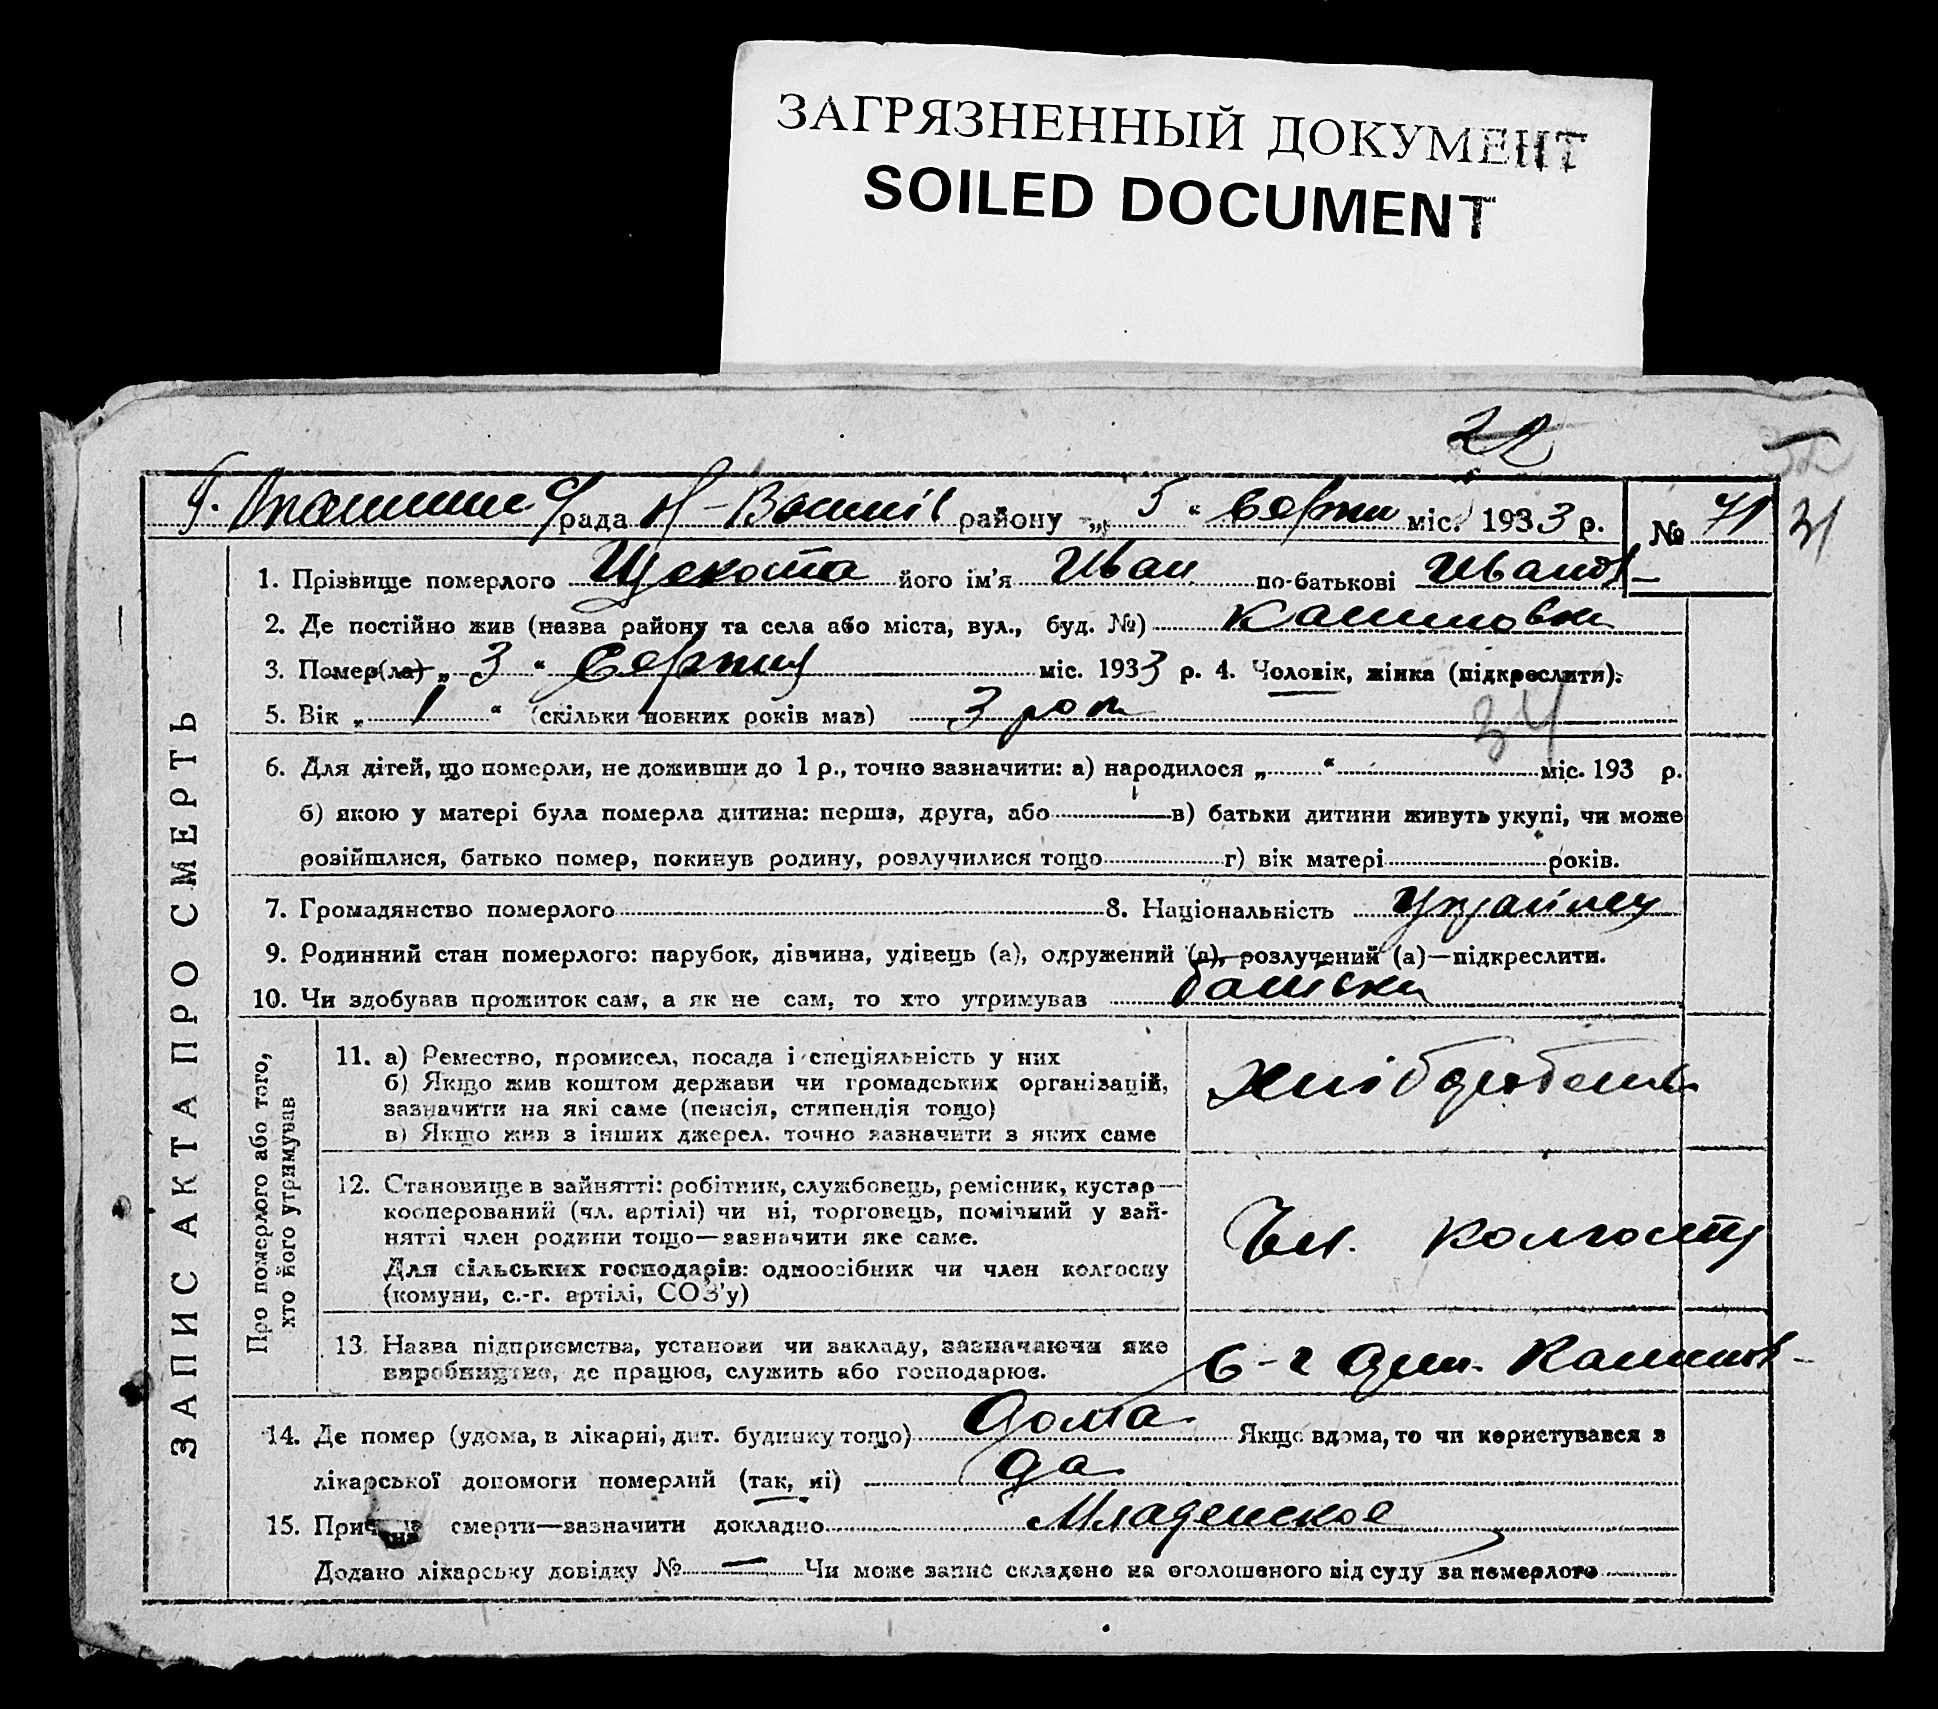 ЗАГРЯЗНЕННЫЙ ДОКУМЕНТ
SOILED DOCUMENT
22
31
рада Н-Возній району „ 5 “ Серпн міс. 1933 р. № 71
1. Прізвище померлого Щекота його ім'я Иван по-батькові Иванов-
2. Де постійно жив (назва району та села або міста, вул., буд. №)
3. Помер(ла) „ 3 “ Серпня міс. 1933 р. 4. Чоловік, жінка (підкреслити).
5. Вік „ 1 “ (скільки повних років мав) 3 рок
34
6. Для дітей, що померли, не доживши до 1 р., точно зазначити: а) народилося „ “ міс. 193 р.
б) якою у матері була померла дитина: перша, друга, або в) батьки дитини живуть укупі, чи може
розійшлися, батько помер, покинув родину, розлучилися тощо г) вік матері років.
7. Громадянство померлого 8. Національність Українец
9. Родинний стан померлого: парубок, дівчина, удівець (а), одружений (а), розлучений (а)—підкреслити.
10. Чи здобував прожиток сам, а як не сам, то хто утримував батьки
ЗАПИС АКТА ПРО СМЕРТЬ
Про померлого або того,
хто його утримував
11. а) Ремество, промисел, посада і спеціяльність у них
б) Якщо жив коштом держави чи громадських організацій,
зазначити на які саме (пенсія, стипендія тощо)
в) Якщо жив з інших джерел, точно зазначити з яких саме
хлібороб
12. Становище в зайнятті: робітник, службовець, ремісник, кустар—
кооперований (чл. артілі) чи ні, торговець, помічний у зай-
нятті член родини тощо—зазначити яке саме.
Для сільських господарів: одноосібник чи член колгоспу
(комуни, с.-г. артілі, СОЗ'у)
Чл. колгоспу
13. Назва підприємства, установи чи закладу, зазначаючи яке
виробництво, де працює, служить або господарює.
14. Де помер (удома, в лікарні, дит. будинку тощо) дома Якщо вдома, то чи користувався з
лікарської допомоги померлий (так, ні) да
15. Причина смерти—зазначити докладно Младенское
Додано лікарську довідку № — Чи може запис складено на оголошеного від суду за померлого